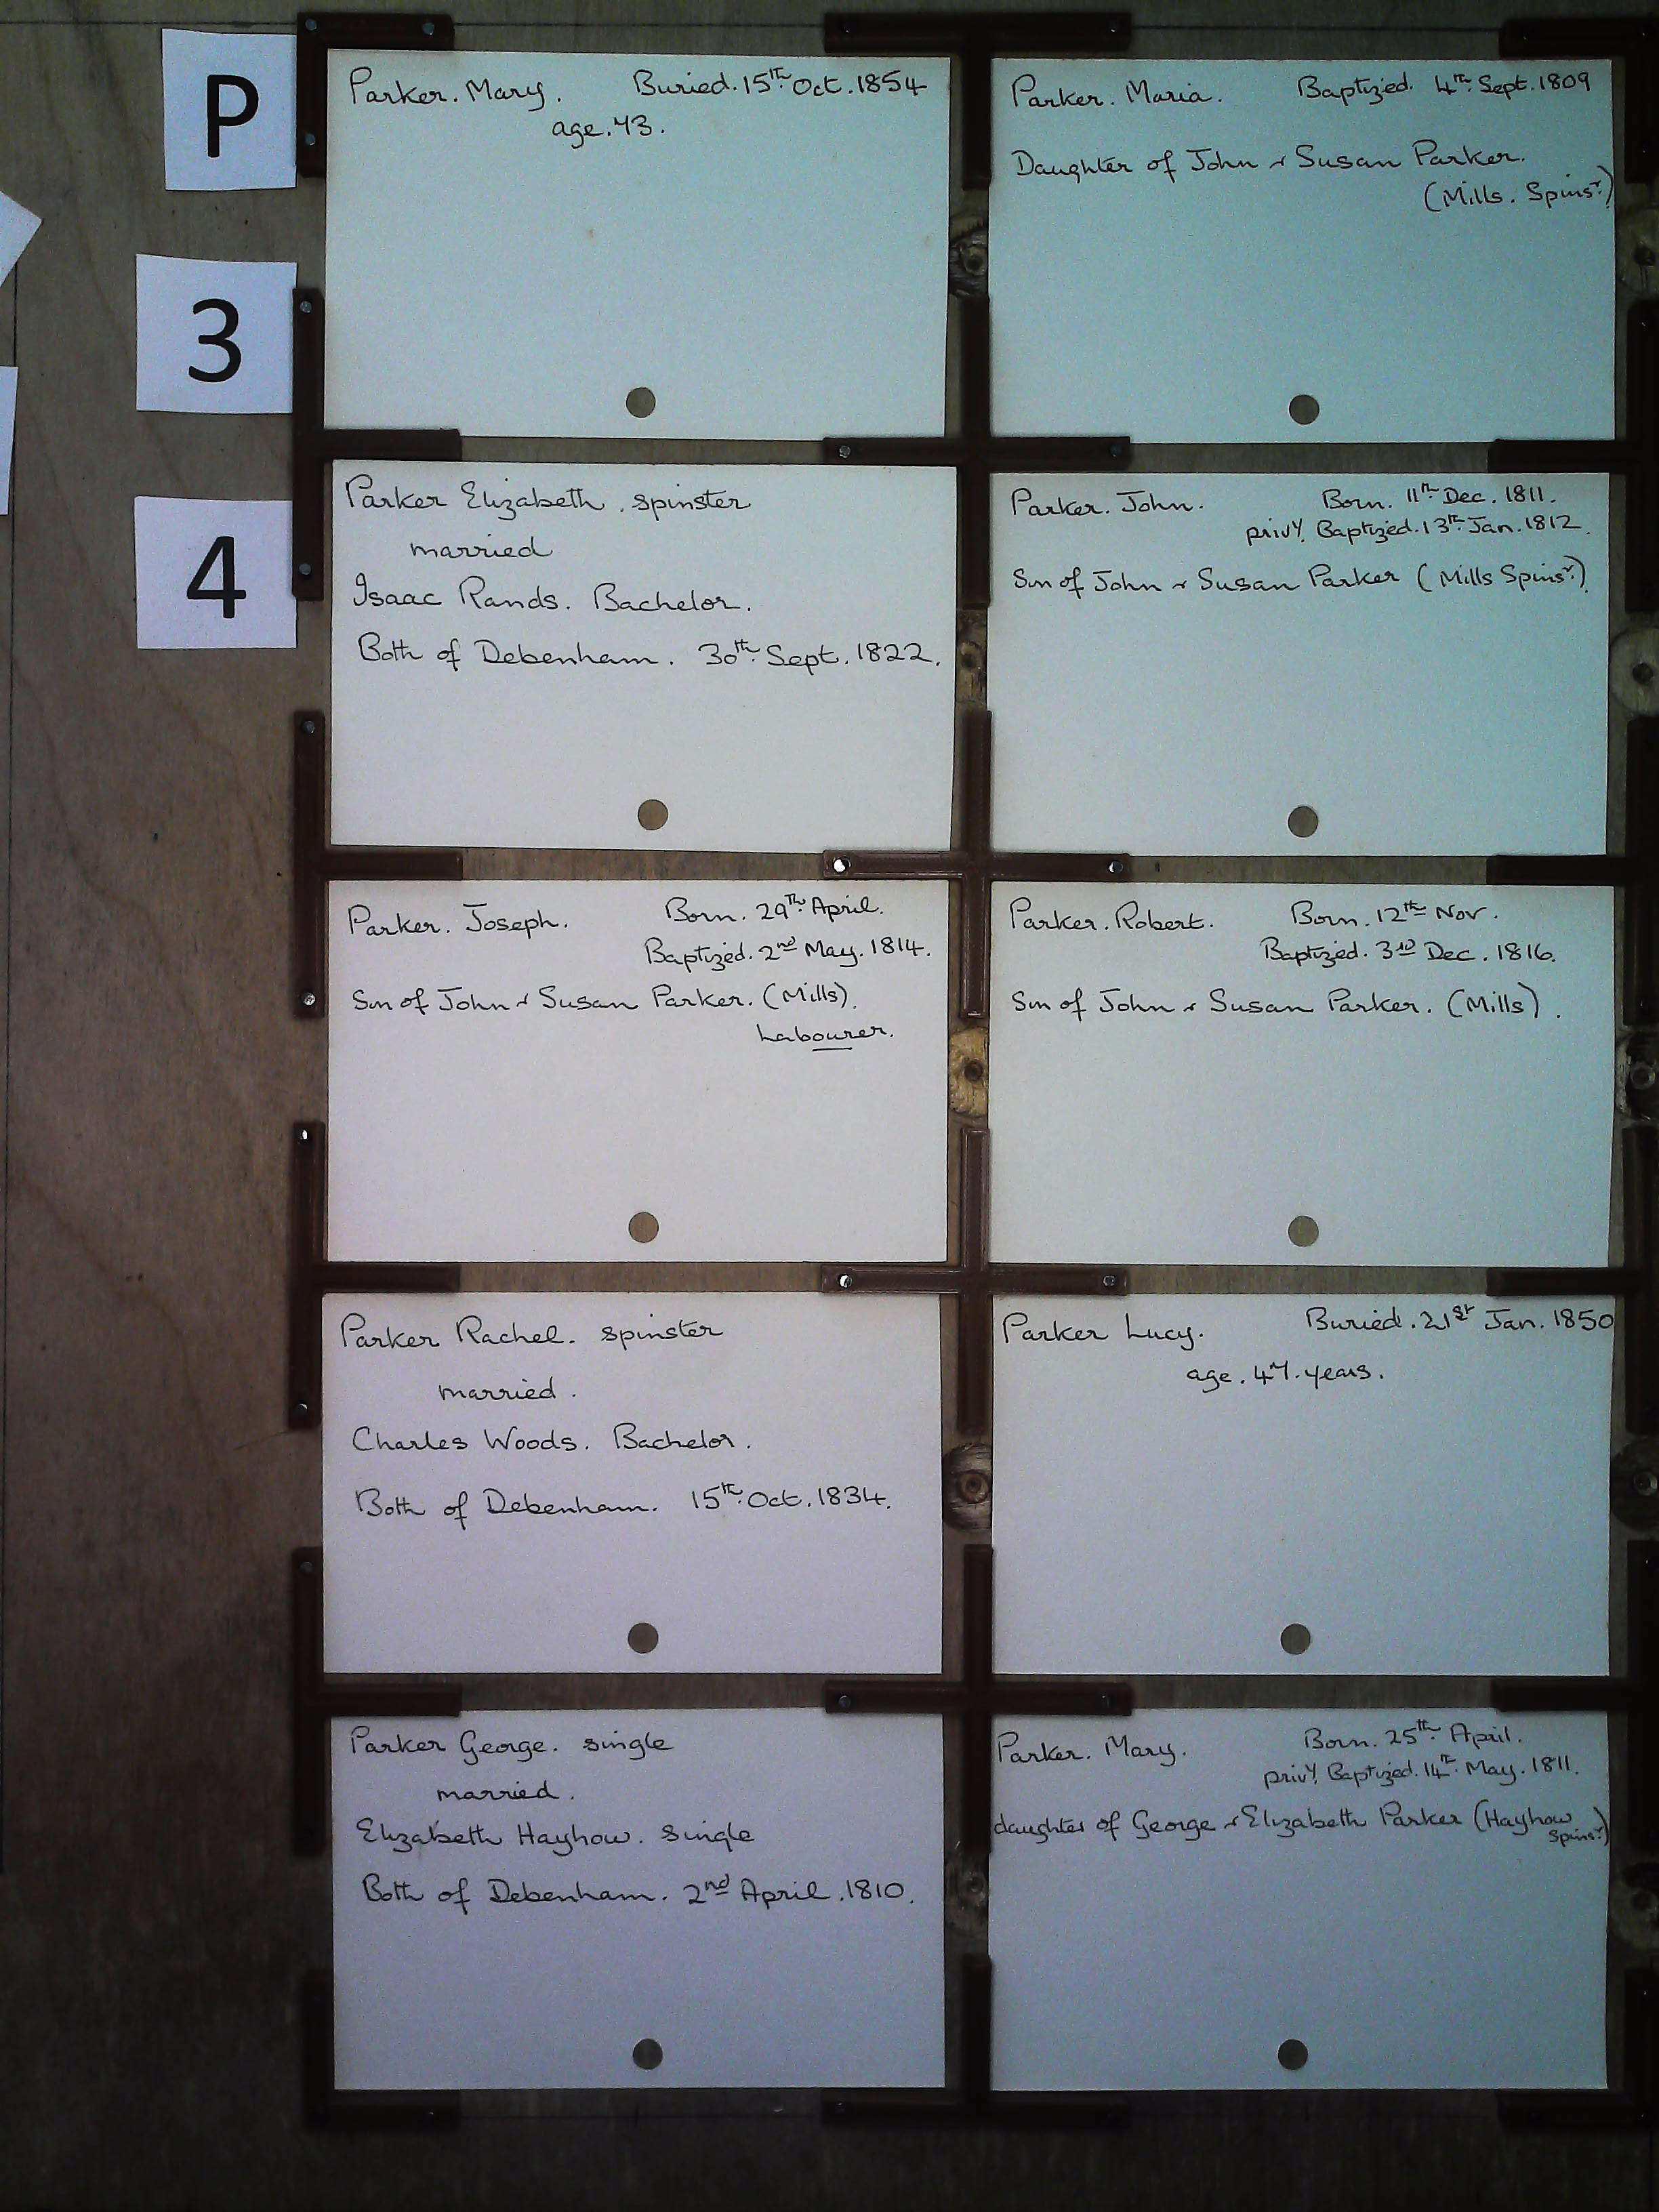 P
3
4
Parker. Mary. Buried. 15th. Oct. 1854
age. 43.
Parker. Maria. Baptized. 4th. Sept. 1809
Daughter of John & Susan Parker.
(Mills. Spinsr.)
Parker Elizabeth. spinster
married
Isaac Rands. Bachelor.
Both of Debenham. 30th. Sept. 1822.
Parker. John. Born. 11th. Dec. 1811.
privY. Baptized. 13th. Jan. 1812.
Son of John & Susan Parker (Mills Spinsr.)
Parker. Joseph. Born. 29th. April.
Baptized. 2nd May. 1814.
Son of John & Susan Parker. (Mills).
Labourer.
Parker. Robert. Born. 12th Nov.
Baptized. 3rd Dec. 1816.
Son of John & Susan Parker. (Mills).
Parker Rachel. spinster
married.
Charles Woods. Bachelor.
Both of Debenham. 15th. Oct. 1834.
Parker Lucy. Buried. 21st Jan. 1850
age. 47. years.
Parker George. single
married.
Elizabeth Hayhow. single
Both of Debenham. 2nd April. 1810.
Parker. Mary. Born. 25th. April.
privY. Baptized. 14th. May. 1811.
daughter of George & Elizabeth Parker (Hayhow
Spinsr.)